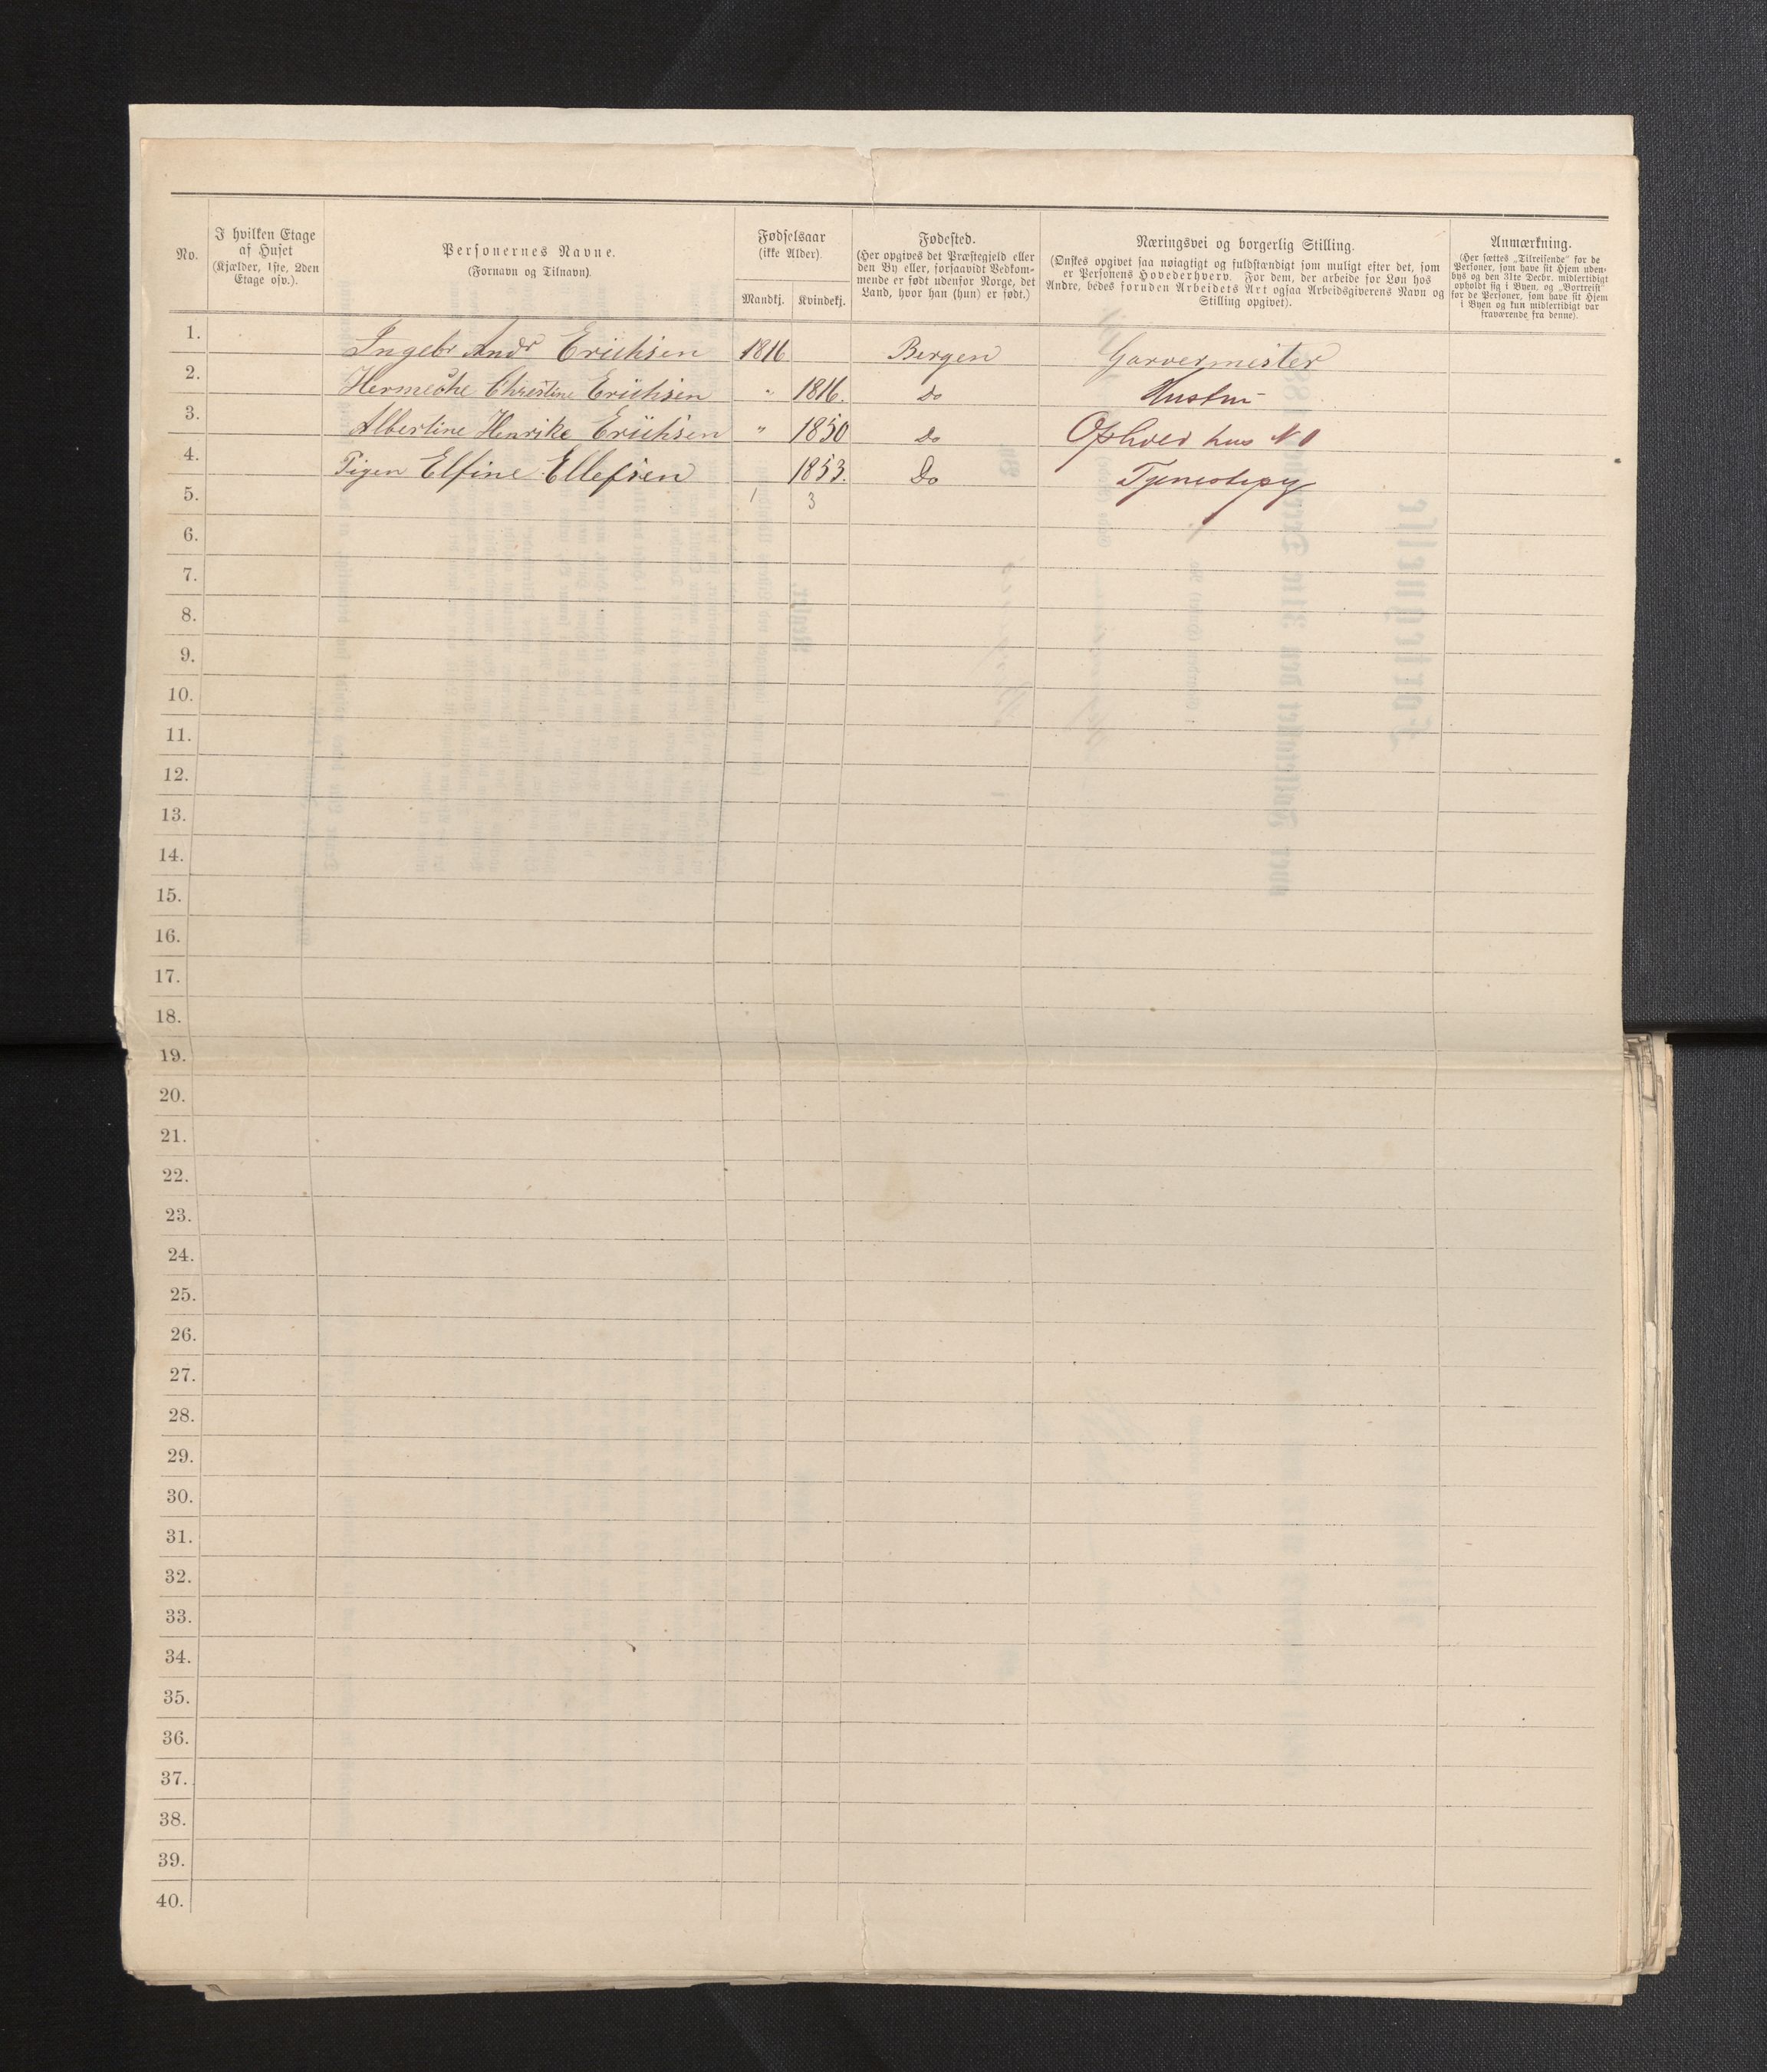 No.
I hvilken Etage
af Huset
(Kjælder, 1ste, 2den
Etage osv.).
Personernes Navne.
(Fornavn og Tilnavn).
Fødselsaar
(ikke Alder).
Mandkj. Kvindekj.
Fødested.
(Her opgives det Præstegjeld eller
den By eller, forsaavidt Vedkom-
mende er født udenfor Norge, det
Land, hvor han (hun) er født.)
Næringsvei og borgerlig Stilling.
(Ønskes opgivet saa nøiagtigt og fuldstændigt som muligt efter det, som
er Personens Hovederhverv. For dem, der arbeide for Løn hos
Andre, bedes foruden Arbeidets Art ogsaa Arbeidsgiverens Navn og
Stilling opgivet).
Anmærkning.
(Her sættes „Tilreisende“ for de
Personer, som have sit Hjem uden-
bys og den 31te Decbr. midlertidigt
opholdt sig i Byen, og „Bortreist“
for de Personer, som have sit Hjem
i Byen og kun midlertidigt var
fraværende fra denne).
1. Ingebr Andr Erichsen 1816 Bergen Garvermester
2. Christine Erichsen " 1816. Do Hustru
3. Albertine Henrike Erichsen " 1850 Do hus No 1
4. Pigen Elfine Ellefsen 1853. Do
5. 1 3
6.
7.
8.
9.
10.
11.
12.
13.
14.
15.
16.
17.
18.
19.
20.
21.
22.
23.
24.
25.
26.
27.
28.
29.
30.
31.
32.
33.
34.
35.
36.
37.
38.
39.
40.